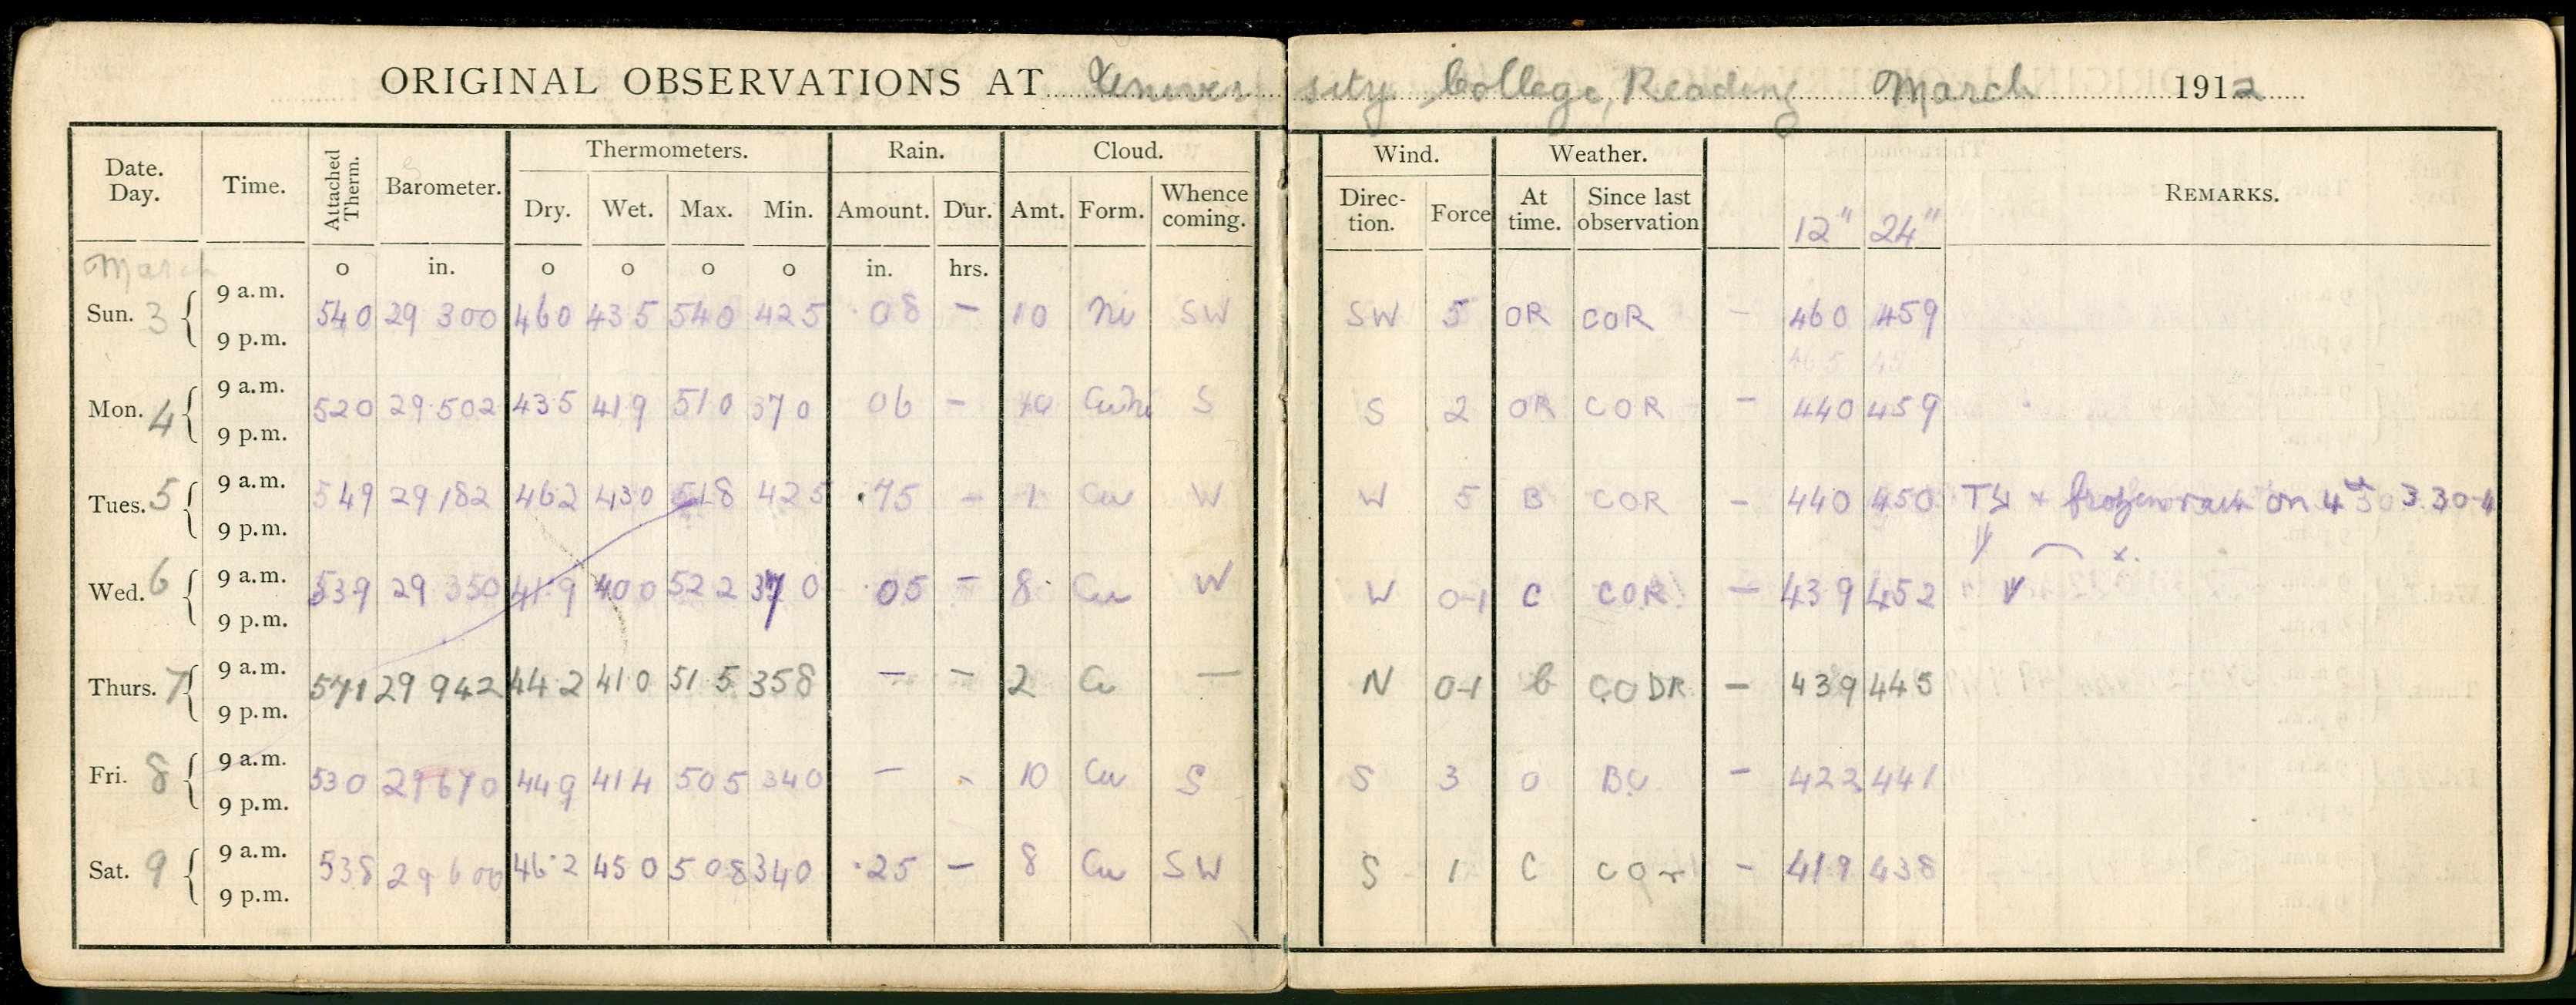 ORIGINAL OBSERVATIONS AT University College, Reading March 1912
Date. Day. Time. Attached Therm. Barometer. Thermometers. Rain. Cloud. Wind. Weather. REMARKS.
Dry. Wet. Max. Min. Amount. Dur. Amt. Form. Whence coming. Direc- tion. Force At time. Since last observation 12" 24"
March o in. o o o o in. hrs.
Sun. 3 9 a.m. 540 29 300 460 435 540 425 .08 — 10 Ni SW SW 5 OR COR — 460 459
9 p.m.
Mon. 4 9 a.m. 520 29.502 435 419 510 370 06 — 10 CuNi S S 2 OR COR — 440 459
9 p.m.
Tues. 5 9 a.m. 549 29 182 462 430 518 425 .75 — 1 Cu W W 5 B COR — 440 450 on 4th 3.30-4
9 p.m.
Wed. 6 9 a.m. 539 29 350 419 400 522 370 .05 — 8 Cu W W 0-1 C COR — 439 452
9 p.m.
Thurs. 7 9 a.m. 571 29 942 442 410 515 358 — — 2 Cu — N 0-1 b CODR — 439 445
9 p.m.
Fri. 8 9 a.m. 530 29670 449 414 505 340 — - 10 Cu S S 3 O BC — 422 441
9 p.m.
Sat. 9 9 a.m. 538 29 600 46.2 450 508 340 .25 — 8 Cu SW S 1 C COr — 419 438
9 p.m.